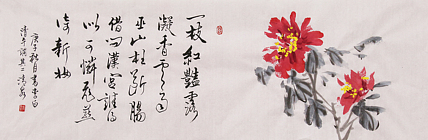 一枝红艷露
凝香云雨
巫山枉断腸
借问漢宮誰得
似可憐飛燕
倚新妝
庚子秋月書李白
清平調其二